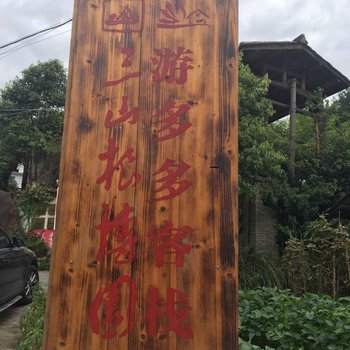 游多多客栈
三山松涛园